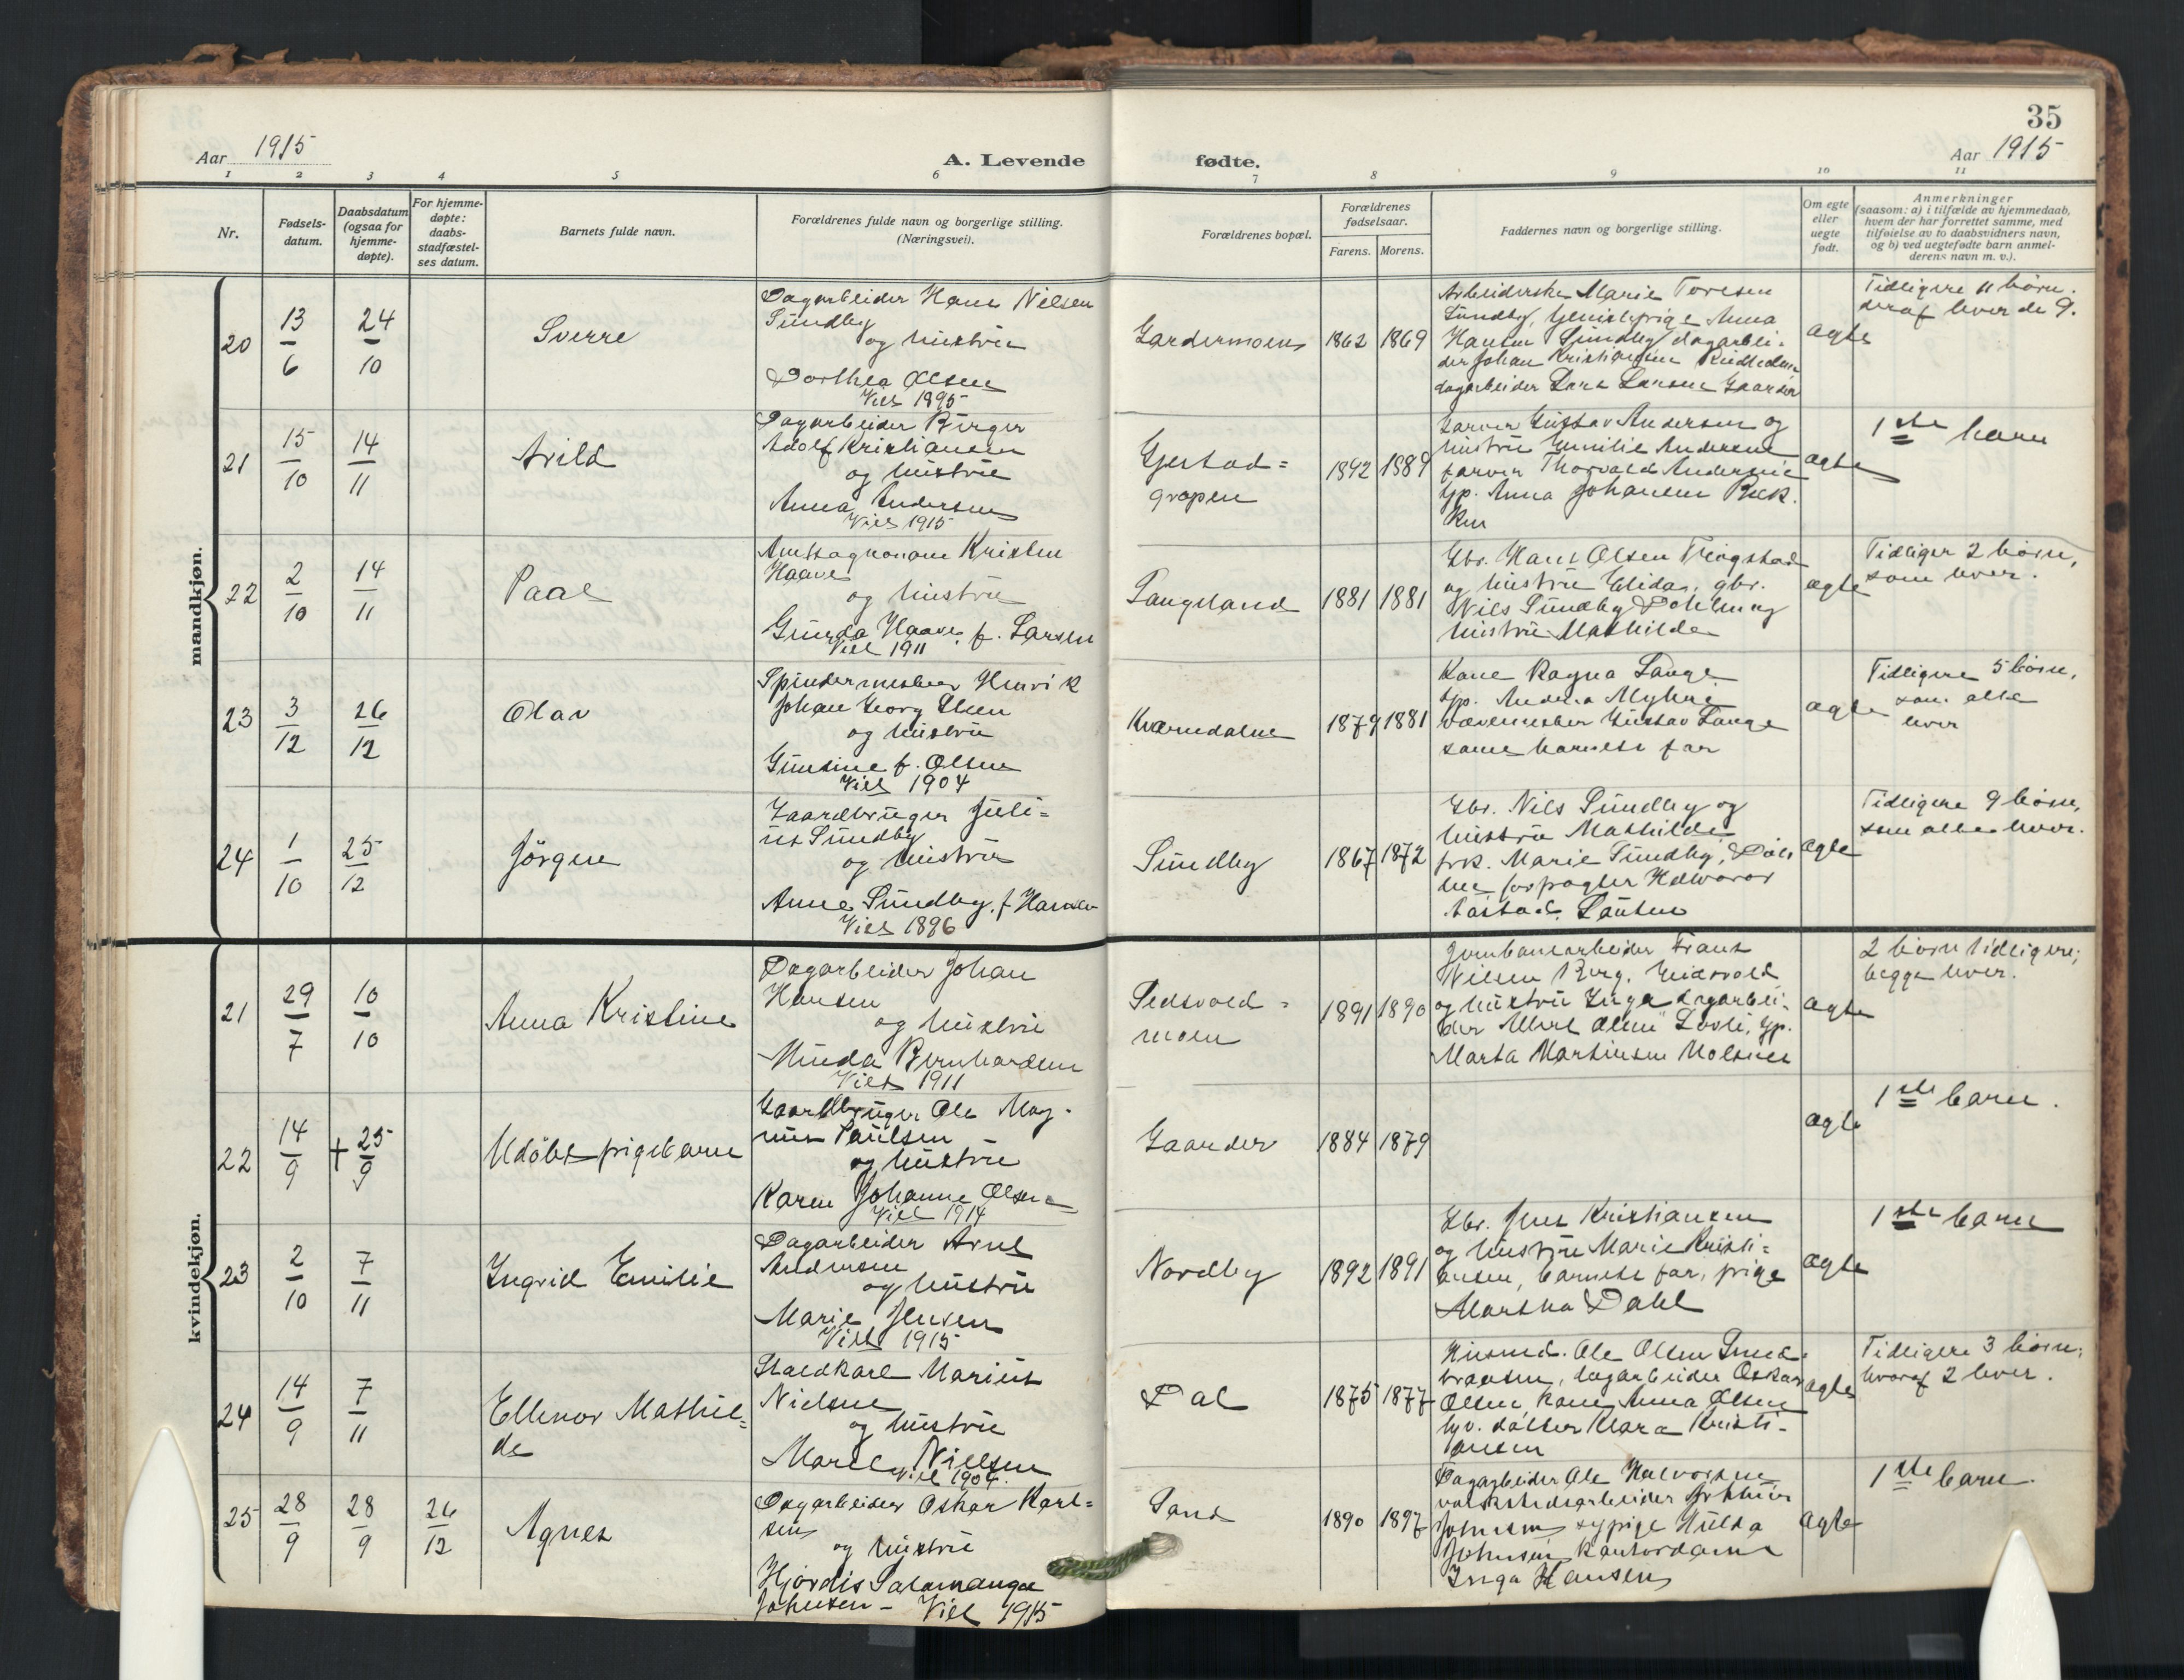 35
Aar 1915
A. Levende
fødte.
Aar 1915
1 2 3 4 5 6 7 8 9 10 11
Nr.
Fødsels-
datum.
Daabsdatum
(ogsaa for
hjemme-
døpte).
For hjemme-
døpte:
daabs-
stadfæstel-
ses datum.
Barnets fulde navn.
Forældrenes fulde navn og borgerlige stilling.
(Næringsvei).
Forældrenes bopæl.
Forældrenes
fødselsaar.
Farens. Morens.
Faddernes navn og borgerlige stilling.
Om egte
eller
uegte
født.
Anmerkninger
(saasom: a) i tilfælde av hjemmedaab,
hvem der har forrettet samme, med
tilføielse av to daabsvidners navn,
og b) ved uegtefødte barn anmel-
derens navn m. v.).
mandkjøn.
20
13/6
24/10
Sverre
Dagarbeider Hans Nilsen
Sundby
og hustru
Dorthea Olsen
Viet 1895
Gardermoen
1862 1869
Arbeiderske Marie Toresen
Sundby,
Hansen Sundby dagarbei-
der Johan Kristiansen
dagarbeider Lars Larsen Gaarder
ægte
Tidligere 11 børn.
deraf lever de 9.
21
15/10
14/11
Arild
Dagarbeider Birger
Adolf Kristiansen
og hustru
Anna Andersen
Viet 1915
Gjestad=
gropen
1892 1889
Garver Gustav Andersen og
hustru Emilie Andersen
farver Thorvald Andersen
tjp. Anna Johansen Bek-
ken
ægte
1ste barn
22
2/10
14/11
Paal
Amtsagronom Kristen
Haave
og hustru
Gunda Haave, f. Larsen
Viet 1911
Langeland
1881 1881
Gbr. Hans Olsen Trøgstad
og hustru Elida, gbr.
Nils Sundby Døhlen og
hustru Mathilde
ægte
Tidligere 2 børn,
som lever.
23
3/12
26/12
Olav
Spindermester Henrik
Johan Georg Olsen
og hustru
Gunsine f. Olsen
Viet 1904
Kværndalen
1879 1881
Kone Ragna Lange
tjp. Andrea Myhre
vævemester Gustav Lange
samt barnets far
ægte
Tidligere 5 børn,
som alle
lever
24
1/10
25/12
Jørgen
Gaardbruger Juli=
us Sundby
og hustru
Anne Sundby, f. Hansen
Viet 1896
Sundby
1867 1872
Gbr. Nils Sundby og
hustru Mathilde
frk. Marie Sundby, Døh-
len forpagter Halvorar
ægte
Tidligere 9 børn,
som alle lever.
kvindekjøn.
21
29/7
10/10
Anna Kristine
Dagarbeider Johan
Hansen
og hustru
Hilda Bernhardsen
Viet 1911
Ledsvold=
moen
1891 1890
Jernbanearbeider Frans
Nilsen Berg, Eidsvold
og hustru Inga dagarbei-
der Albert Olsen Lovli, tjp.
Marta Martinsen Holsnes
ægte
2 børn tidligere;
begge lever.
22
14/9
+ 25/9
Udøbt pigebarn
Gaardbruger Ole Mag-
nus Paulsen
og hustru
Karen Johanne Olsen
Viet 1914
Gaarder
1884 1879
ægte
1ste barn.
23
2/10
7/11
Ingrid Emilie
Dagarbeider Arnt
Andersen
og hustru
Marie Jensen
Viet 1915
Nordby
1892 1891
Gbr. Jens Kristiansen
og hustru Marie Kristi=
ansen, barnets far, pige
Martha Dahl
ægte
1ste barn
24
14/9
7/11
Ellenor Mathil=
de
Staldkarl Marius
Nielsen
og hustru
Maren Nielsen
Viet 1904.
Dal
1875 1877
Husmd. Ole Olsen Smed-
braaten, dagarbeider Oskar
Olsen, kone Anna Olsen
datter Klara Kristi-
ansen
ægte
Tidligere 3 børn,
hvoraf 2 lever.
25
28/9
28/9
26/12
Agnes
Dagarbeider Oskar Karl=
sen
og hustru
Hjørdis Salamanga
Johnsen – Viet 1915
Sand
1890 1897
Dagarbeider Ole Halvorsen
verkstedsarbeider Arthur
Johnsen sypige Hulda
Johnsen kontordame
Inga Hansen
ægte
1ste barn.